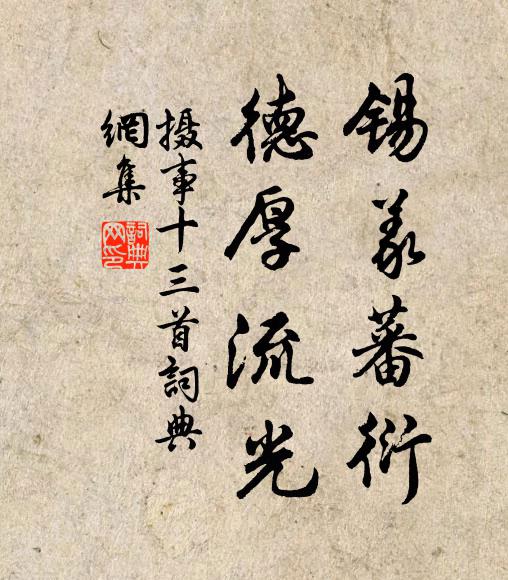 锡羡蕃衍
德厚流光
摄事十三首词典
網集
词典网印